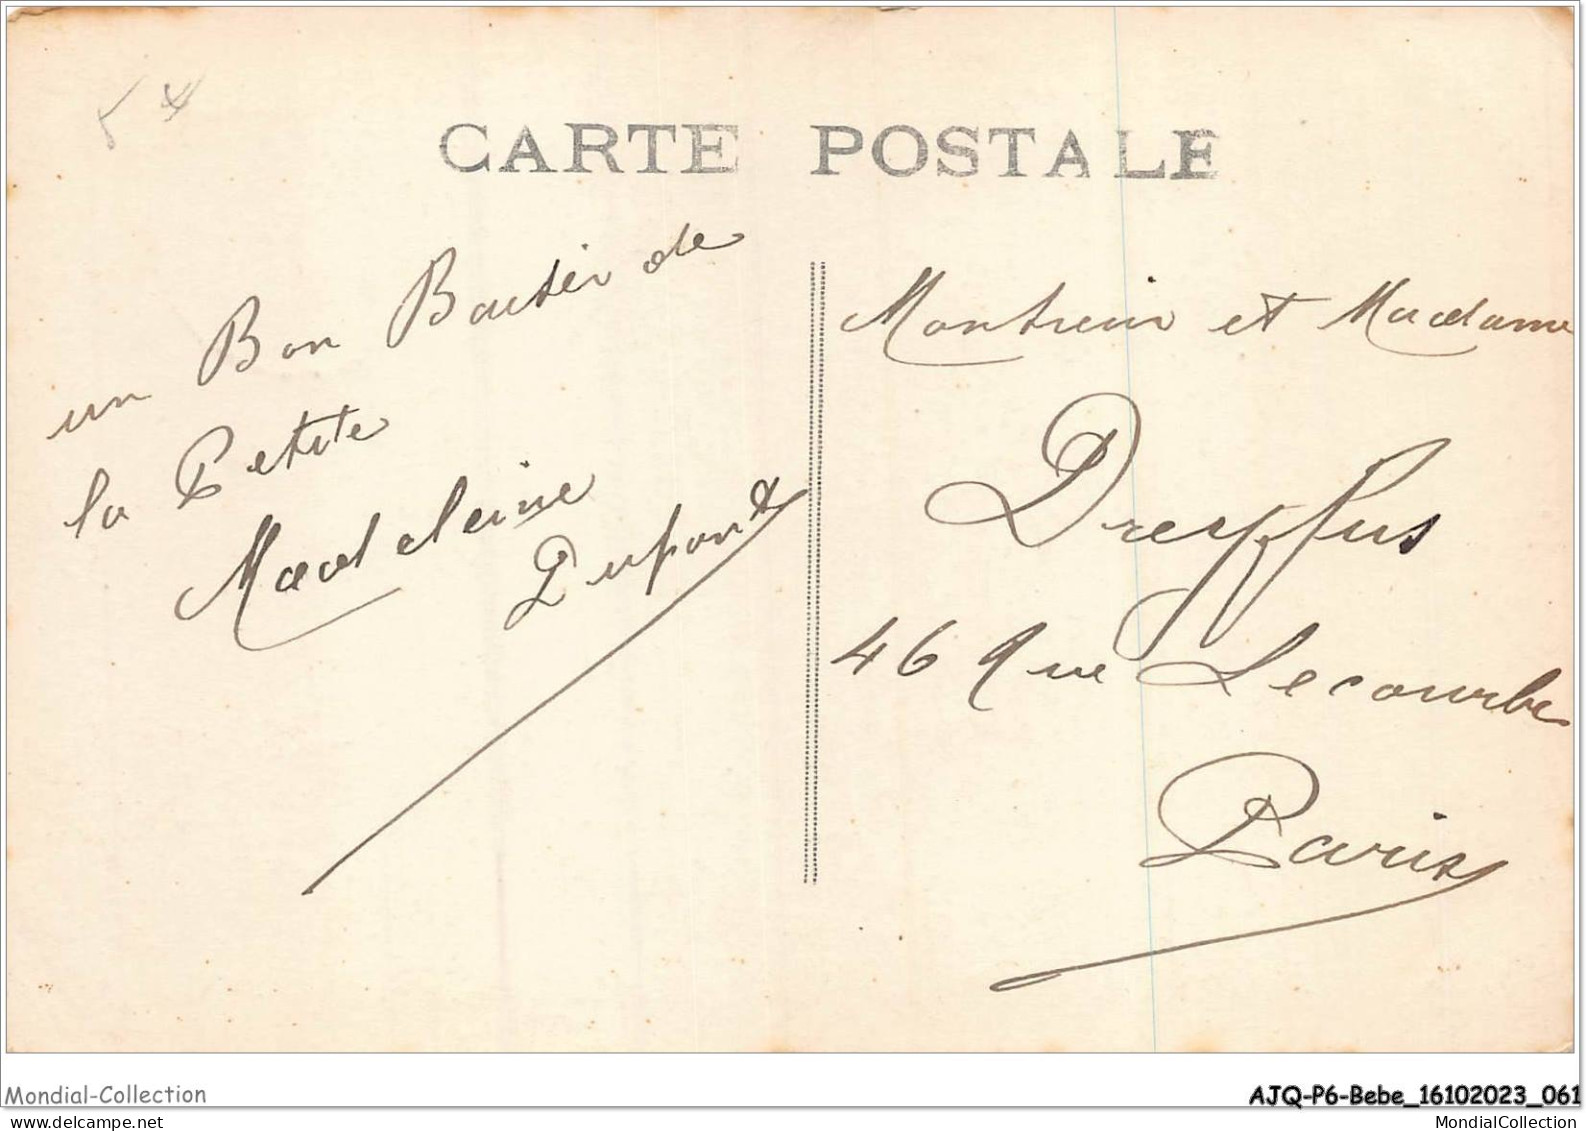 CARTE POSTALE
un Bon Baiser de
la Petite
Madeleine
Dupont
Monsieur et Madame
Dreyfus
46 Rue Lecourbe
Paris
Mondial-Collection
AJQ-P6-Bebe_16102023_061
MondialCollection